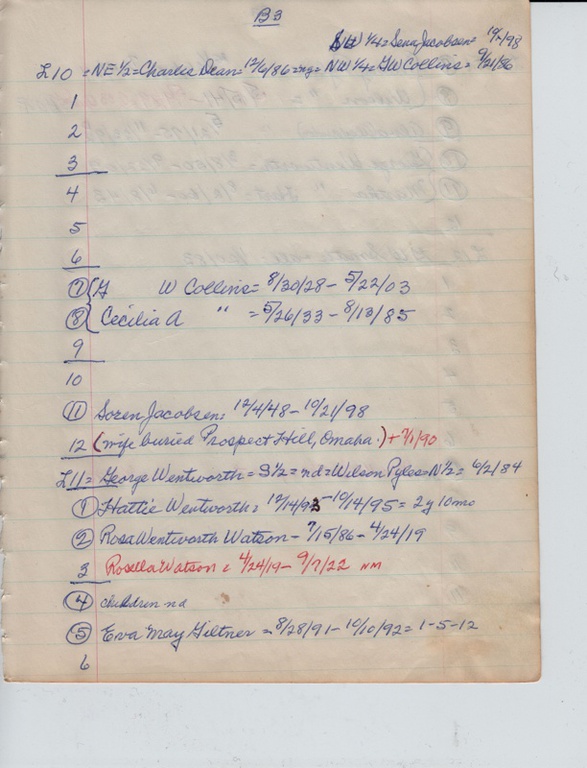 B3
SW 1/4 = Sena Jacobsen = 10/98
L10 = NE 1/2 = Charlie Dean = 12/6/86 = ng = NW 1/4 = GW Collins = 9/21/86
1
2
3
4
5
6
7 { G W Collins = 8/30/28 - 5/22/03
8 { Cecilia A " = 5/26/33 - 8/13/85
9
10
11 Soren Jacobsen = 12/4/48 - 10/21/98
12 (wife buried Prospect Hill, Omaha.) + 7/1/90
L11 = George Wentworth = S 1/2 = nd = Wilson Pyles = N 1/2 = 6/2/84
1 Hattie Wentworth = 12/14/93 - 10/14/95 = 2 y 10 mo
2 Rosa Wentworth Watson - 7/15/86 - 4/24/19
3 Rosella Watson = 4/24/19 - 9/7/22 NM
4 children nd
5 Eva May Giltner = 8/28/91 - 10/10/92 = 1-5-12
6